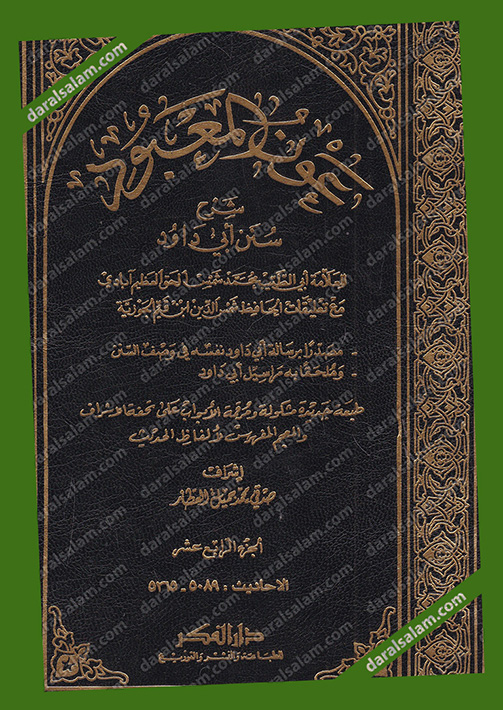 عون المعبود
شرح
سنن أبي داود
للعلامة أبي الطيب محمد شمس الحق العظيم آبادي
مع تعليقات الحافظ شمس الدين ابن قيم الجوزية
- مصدرا برسالة أبي داود نفسه في وصف السنن
- وملحقا به مراسيل أبي داود
طبعة جديدة مشكولة ومرقمة الأبواب على تحفة الأشراف
والمعجم المفهرس لألفاظ الحديث
إشراف
صدقي محمد جميل العطار
الجزء الرابع عشر
الأحاديث : ٥٠٨٩ - ٥٣٦٥
دار الفكر
للطباعة والنشر والتوزيع
daralsalam.com